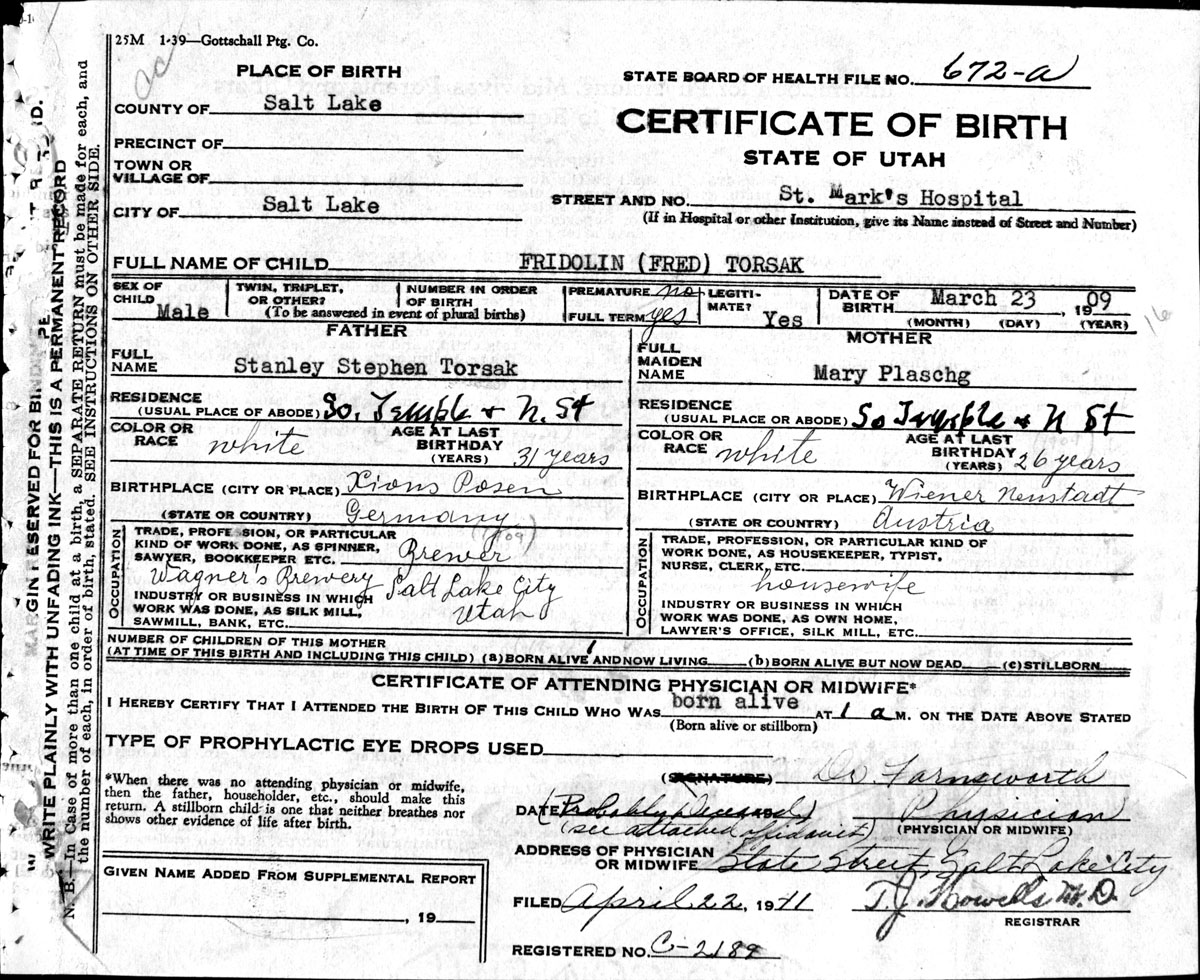 25M 1-39—Gottschall Ptg. Co.
PLACE OF BIRTH
STATE BOARD OF HEALTH FILE NO. 672-a
COUNTY OF Salt Lake
CERTIFICATE OF BIRTH
PRECINCT OF
STATE OF UTAH
TOWN OR
VILLAGE OF
STREET AND NO. St. Mark's Hospital
CITY OF Salt Lake
(If in Hospital or other Institution, give its Name instead of Street and Number)
FULL NAME OF CHILD FRIDOLIN (FRED) TORSAK
SEX OF CHILD Male
TWIN, TRIPLET, OR OTHER?
NUMBER IN ORDER OF BIRTH
(To be answered in event of plural births)
PREMATURE no
FULL TERM yes
LEGITIMATE? Yes
DATE OF BIRTH March 23, 1909
(MONTH) (DAY) (YEAR)
16
FATHER
FULL NAME Stanley Stephen Torsak
RESIDENCE
(USUAL PLACE OF ABODE) So. Temple + N. St
COLOR OR RACE white
AGE AT LAST BIRTHDAY (YEARS) 31 years
BIRTHPLACE (CITY OR PLACE) Xions Posen
(STATE OR COUNTRY) Germany
(1909)
OCCUPATION
TRADE, PROFESSION, OR PARTICULAR
KIND OF WORK DONE, AS SPINNER,
SAWYER, BOOKKEEPER ETC. Brewer
Wagner's Brewery Salt Lake City
INDUSTRY OR BUSINESS IN WHICH Utah
WORK WAS DONE, AS SILK MILL,
SAWMILL, BANK, ETC.
MOTHER
FULL MAIDEN NAME Mary Plaschg
RESIDENCE
(USUAL PLACE OR ABODE) So Temple + N St
COLOR OR RACE white
AGE AT LAST BIRTHDAY (YEARS) 26 years
(1909)
BIRTHPLACE (CITY OR PLACE) Wiener Neustadt
(STATE OR COUNTRY) Austria
OCCUPATION
TRADE, PROFESSION, OR PARTICULAR KIND OF
WORK DONE, AS HOUSEKEEPER, TYPIST,
NURSE, CLERK, ETC.
housewife
INDUSTRY OR BUSINESS IN WHICH
WORK WAS DONE, AS OWN HOME,
LAWYER'S OFFICE, SILK MILL, ETC.
NUMBER OF CHILDREN OF THIS MOTHER
(AT TIME OF THIS BIRTH AND INCLUDING THIS CHILD) (a) BORN ALIVE AND NOW LIVING 1 (b) BORN ALIVE BUT NOW DEAD (c) STILLBORN
CERTIFICATE OF ATTENDING PHYSICIAN OR MIDWIFE*
I HEREBY CERTIFY THAT I ATTENDED THE BIRTH OF THIS CHILD WHO WAS born alive AT 1 a M. ON THE DATE ABOVE STATED
(Born alive or stillborn)
TYPE OF PROPHYLACTIC EYE DROPS USED
*When there was no attending physician or midwife,
then the father, householder, etc., should make this
return. A stillborn child is one that neither breathes nor
shows other evidence of life after birth.
(SIGNATURE) Dr Farnsworth
DATE (Probably Deceased) Physician
(see attached affidavit) (PHYSICIAN OR MIDWIFE)
ADDRESS OF PHYSICIAN
OR MIDWIFE State Street, Salt Lake City
GIVEN NAME ADDED FROM SUPPLEMENTAL REPORT
, 19
FILED April 22, 1941 T. J. Howells M.D.
REGISTRAR
REGISTERED NO. C-2184
MARGIN RESERVED FOR
WRITE PLAINLY WITH UNFADING INK—THIS IS A PERMANENT RECORD
N. B.—In Case of more than one child at a birth, a SEPARATE RETURN must be made for each, and
the number of each, in order of birth, stated. SEE INSTRUCTIONS ON OTHER SIDE.